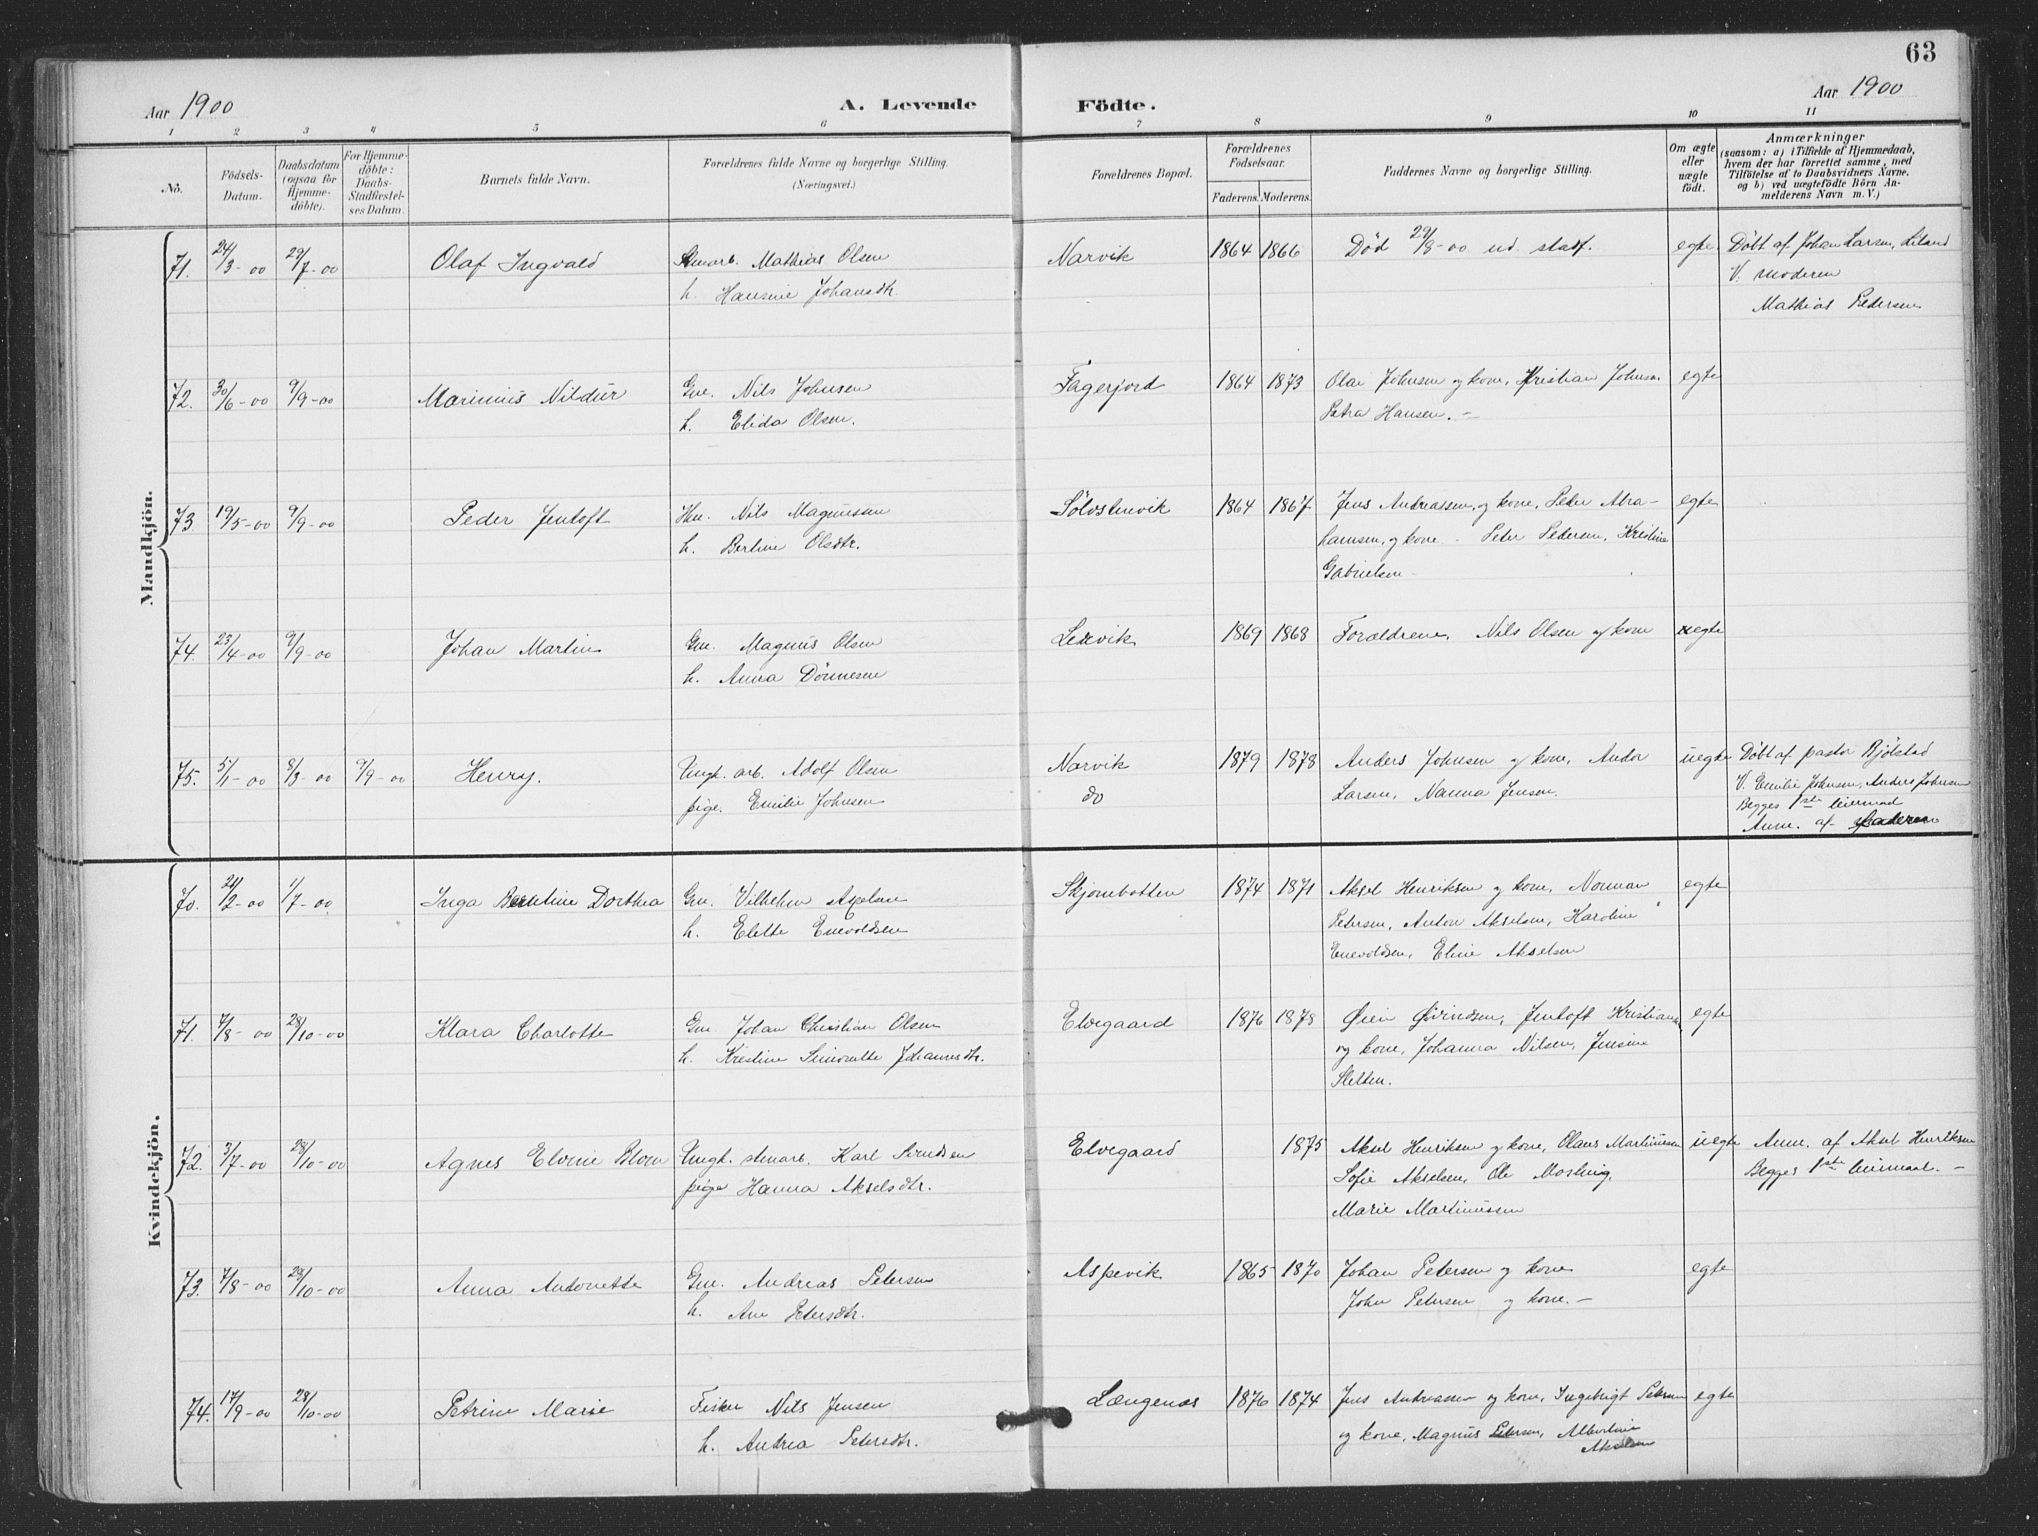 63
Aar 1900
A. Levende
Födte.
Aar 1900
1 2 3 4 5 6 7 8 9 10 11
No.
Födsels-
Datum.
Daabsdatum
(ogsaa for
Hjemme-
döbte).
For Hjemme-
döbte:
Daabs-
Stadfæstel-
ses Datum.
Barnets fulde Navn.
Forældrenes fulde Navne og borgerlige Stilling.
(Næringsvei.)
Forældrenes Bopæl.
Forældrenes
Födselsaar.
Faderens. Moderens.
Faddernes Navne og borgerlige Stilling.
Om ægte
eller
uægte
födt.
Anmærkninger
(saasom: a) i Tilfælde af Hjemmedaab,
hvem der har forrettet samme, med
Tilföielse af to Daabsvidners Navne,
og b) ved uægtefödte Börn An-
melderens Navn m. V.)
Mandkjön.
71. 24/3-00 29/7-00 Olaf Ingvald Stenarb. Mathias Olsen Narvik 1864 1866 Død 29/8-00 ud. stadf. egte Døbt af Johan Larsen, Liland
h. Hansine Johansdtr. V. moderen
Mathias Pedersen
72. 30/6-00 9/9-00 Marinius Nildur Gm. Nils Johnsen Fagerjord 1864 1873 Olai Johnsen og kone, Kristian Johnsen egte
h. Elida Olsen. Petra Hansen. -
73. 19/5-00 9/9-00 Peder Jentoft Hm. Nils Magnussen Sølvstenvik 1864 1867 Jens Andreassen, og kone, Peder Abra- egte
h. Berline Olsdtr. hamsen, og kone - Peter Pedersen, Kristine
Gabrielsen -
74. 23/4-00 9/9-00 Johan Martin Gm. Magnus Olsen Lervik 1869 1868 Forældrene, Nils Olsen og kone egte
h. Anna Dønnesen
75. 5/1-00 8/3-00 9/9-00 Henry. Ungk. arb. Adolf Olsen Narvik 1879 1878 Anders Johnsen og kone, Andor uegte Døbt af pastor Bjølstad
pige. Emilie Johnsen do Larsen, Nanna Jensen. V. Emilie Johnsen, Anders Johnsen
Begges 1ste leiermaal
Anm. af Faderen
Kvindekjön.
70. 21/2-00 1/7-00 Inga Berntine Dorthea Gm. Vilhelm Axelsen Skjombotten 1874 1871 Aksel Henriksen og kone, Norman egte
h. Elette Enevoldsen Petersen, Anton Akselsen, Karoline
Enevoldsen, Eline Akselsen
71. 7/8-00 28/10-00 Klara Charlotte Gm. Johan Christian Olsen Elvegaard 1876 1878 Øien Øvindsen, Jentoft Kristians. egte
h. Kristine Simonette Johannesdtr. og kone, Johanna Nilsen, Jensine
Sletten.
72. 3/7-00 28/10-00 Agnes Elvine Blom Ungk. stenarb. Karl Knudsen Elvegaard 1875 Aksel Henriksen og kone, Olaus Martinussen uegte Anm. af Aksel Henriksen
pige Hanna Akselsdtr. Sofie Akselsen, Ole Mosling, Begges 1ste leiermaal. -
Marie Martinussen
73. 7/8-00 28/10-00 Anna Antonette Gm. Andreas Petersen Aspevik 1865 1870 Johan Petersen og kone egte
h. Ane Petersdtr. John Petersen og kone. -
74. 17/9-00 28/10-00 Petrine Marie Fisker Nils Jensen Længenæs 1876 1874 Jens Andreassen og kone, Ingebrigt Petersen egte
h. Andrea Petersdtr. og kone, Magnus Petersen, Albertine
Akselsen